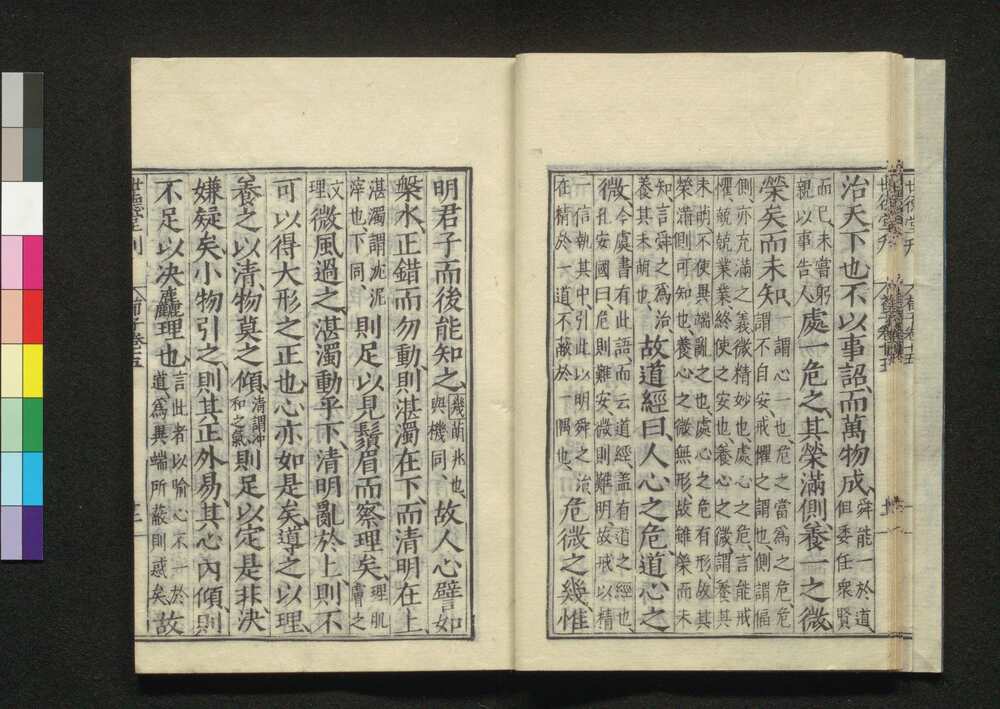 治天下也不以事詔而萬物成舜能一於道但委任衆賢
而已未嘗躬親以事告人處一危之其榮滿側養一之微
榮矣而未知一謂心一也危之當爲之危危謂不自安戒懼之謂也側謂偏
側亦充滿之義微精妙也處心之危言能戒懼兢兢業業終使之安也養心之微謂養其
未萌不使異端亂之也處心之危有形故其榮滿側可知也養心之微無形故雖榮而未
知言舜之爲治養其未萌也故道經曰人心之危道心之
微今虞書有此語而云道經盖有道之經也孔安國曰危則難安微則難明故戒以精
一信執其中引此以明舜之治在精於一道不蔽於一隅也危微之幾惟
明君子而後能知之幾萌兆也與機同故人心譬如
槃水正錯而勿動則湛濁在下而清明在上
湛濁謂沈泥滓也下同則足以見鬚眉而察理矣理肌膚之
文理微風過之湛濁動乎下清明亂於上則不
可以得大形之正也心亦如是矣導之以理
養之以清物莫之傾清謂冲和之氣則足以定是非決
嫌疑矣小物引之則其正外易其心內傾則
不足以決麤理也言此者以喻心不一於道爲異端所蔽則惑矣故